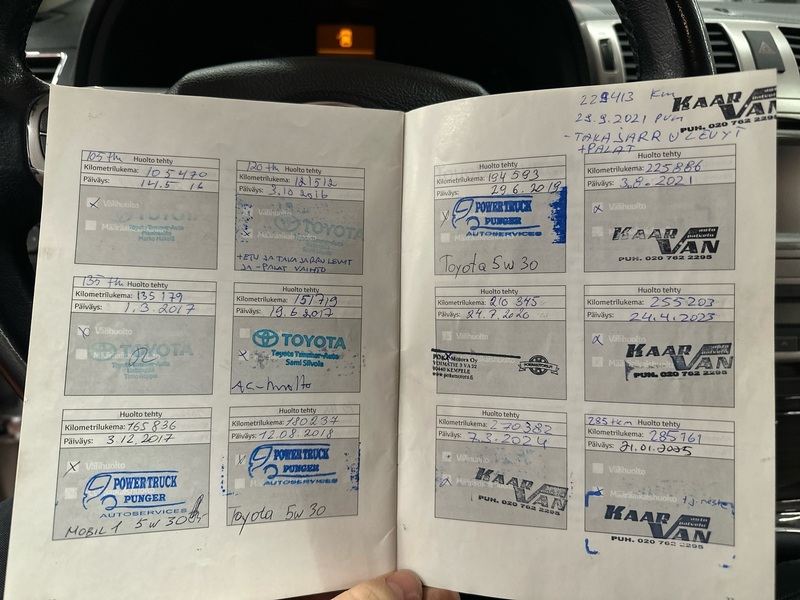 105 tkm
Huolto tehty
Kilometrilukema: 105470
Päiväys: 14.5 16
Välihuolto
120 tkm
Huolto tehty
Kilometrilukema: 121512
Päiväys: 3.10 2016
TOYOTA
+ETU JA TAKA JARRU LEVYT
JA -PALAT VAIHTO
135 tkm
Huolto tehty
Kilometrilukema: 135179
Päiväys: 1.3.2017
Välihuolto
TOYOTA
Huolto tehty
Kilometrilukema: 151719
Päiväys: 19.6 2017
Välihuolto
TOYOTA
Toyota Tammer-Auto
Sami Silvola
AC-huolto
Huolto tehty
Kilometrilukema: 165836
Päiväys: 3.12.2017
Välihuolto
POWERTRUCK
PUNGER
AUTOSERVICES
MOBIL 1 5w 30
Huolto tehty
Kilometrilukema: 180237
Päiväys: 12.08.2018
POWERTRUCK
PUNGER
AUTOSERVICES
Toyota 5w 30
229413 km
29.9.2021
-TAKAJARRULEVYT
+PALAT
KAARVAN
PUH. 020 762 2295
Huolto tehty
Kilometrilukema: 194593
Päiväys: 29.6.2019
POWERTRUCK
PUNGER
AUTOSERVICES
Toyota 5w 30
Huolto tehty
Kilometrilukema: 225886
Päiväys: 3.8.2021
Välihuolto
KAARVAN
auto
palvelu
PUH. 020 762 2295
Huolto tehty
Kilometrilukema: 210 345
Päiväys: 24.7.2020
Välihuolto
90440 KEMPELE
Huolto tehty
Kilometrilukema: 255203
Päiväys: 24.4.2023
Välihuolto
KAARVAN
auto
palvelu
PUH. 020 762 2295
Huolto tehty
Kilometrilukema: 270382
Päiväys: 7.3.2024
Välihuolto
KAARVAN
auto
palvelu
PUH. 020 762 2295
285 tkm
Huolto tehty
Kilometrilukema: 285161
Päiväys: 21.01.2025
KAARVAN
auto
palvelu
PUH. 020 762 2295